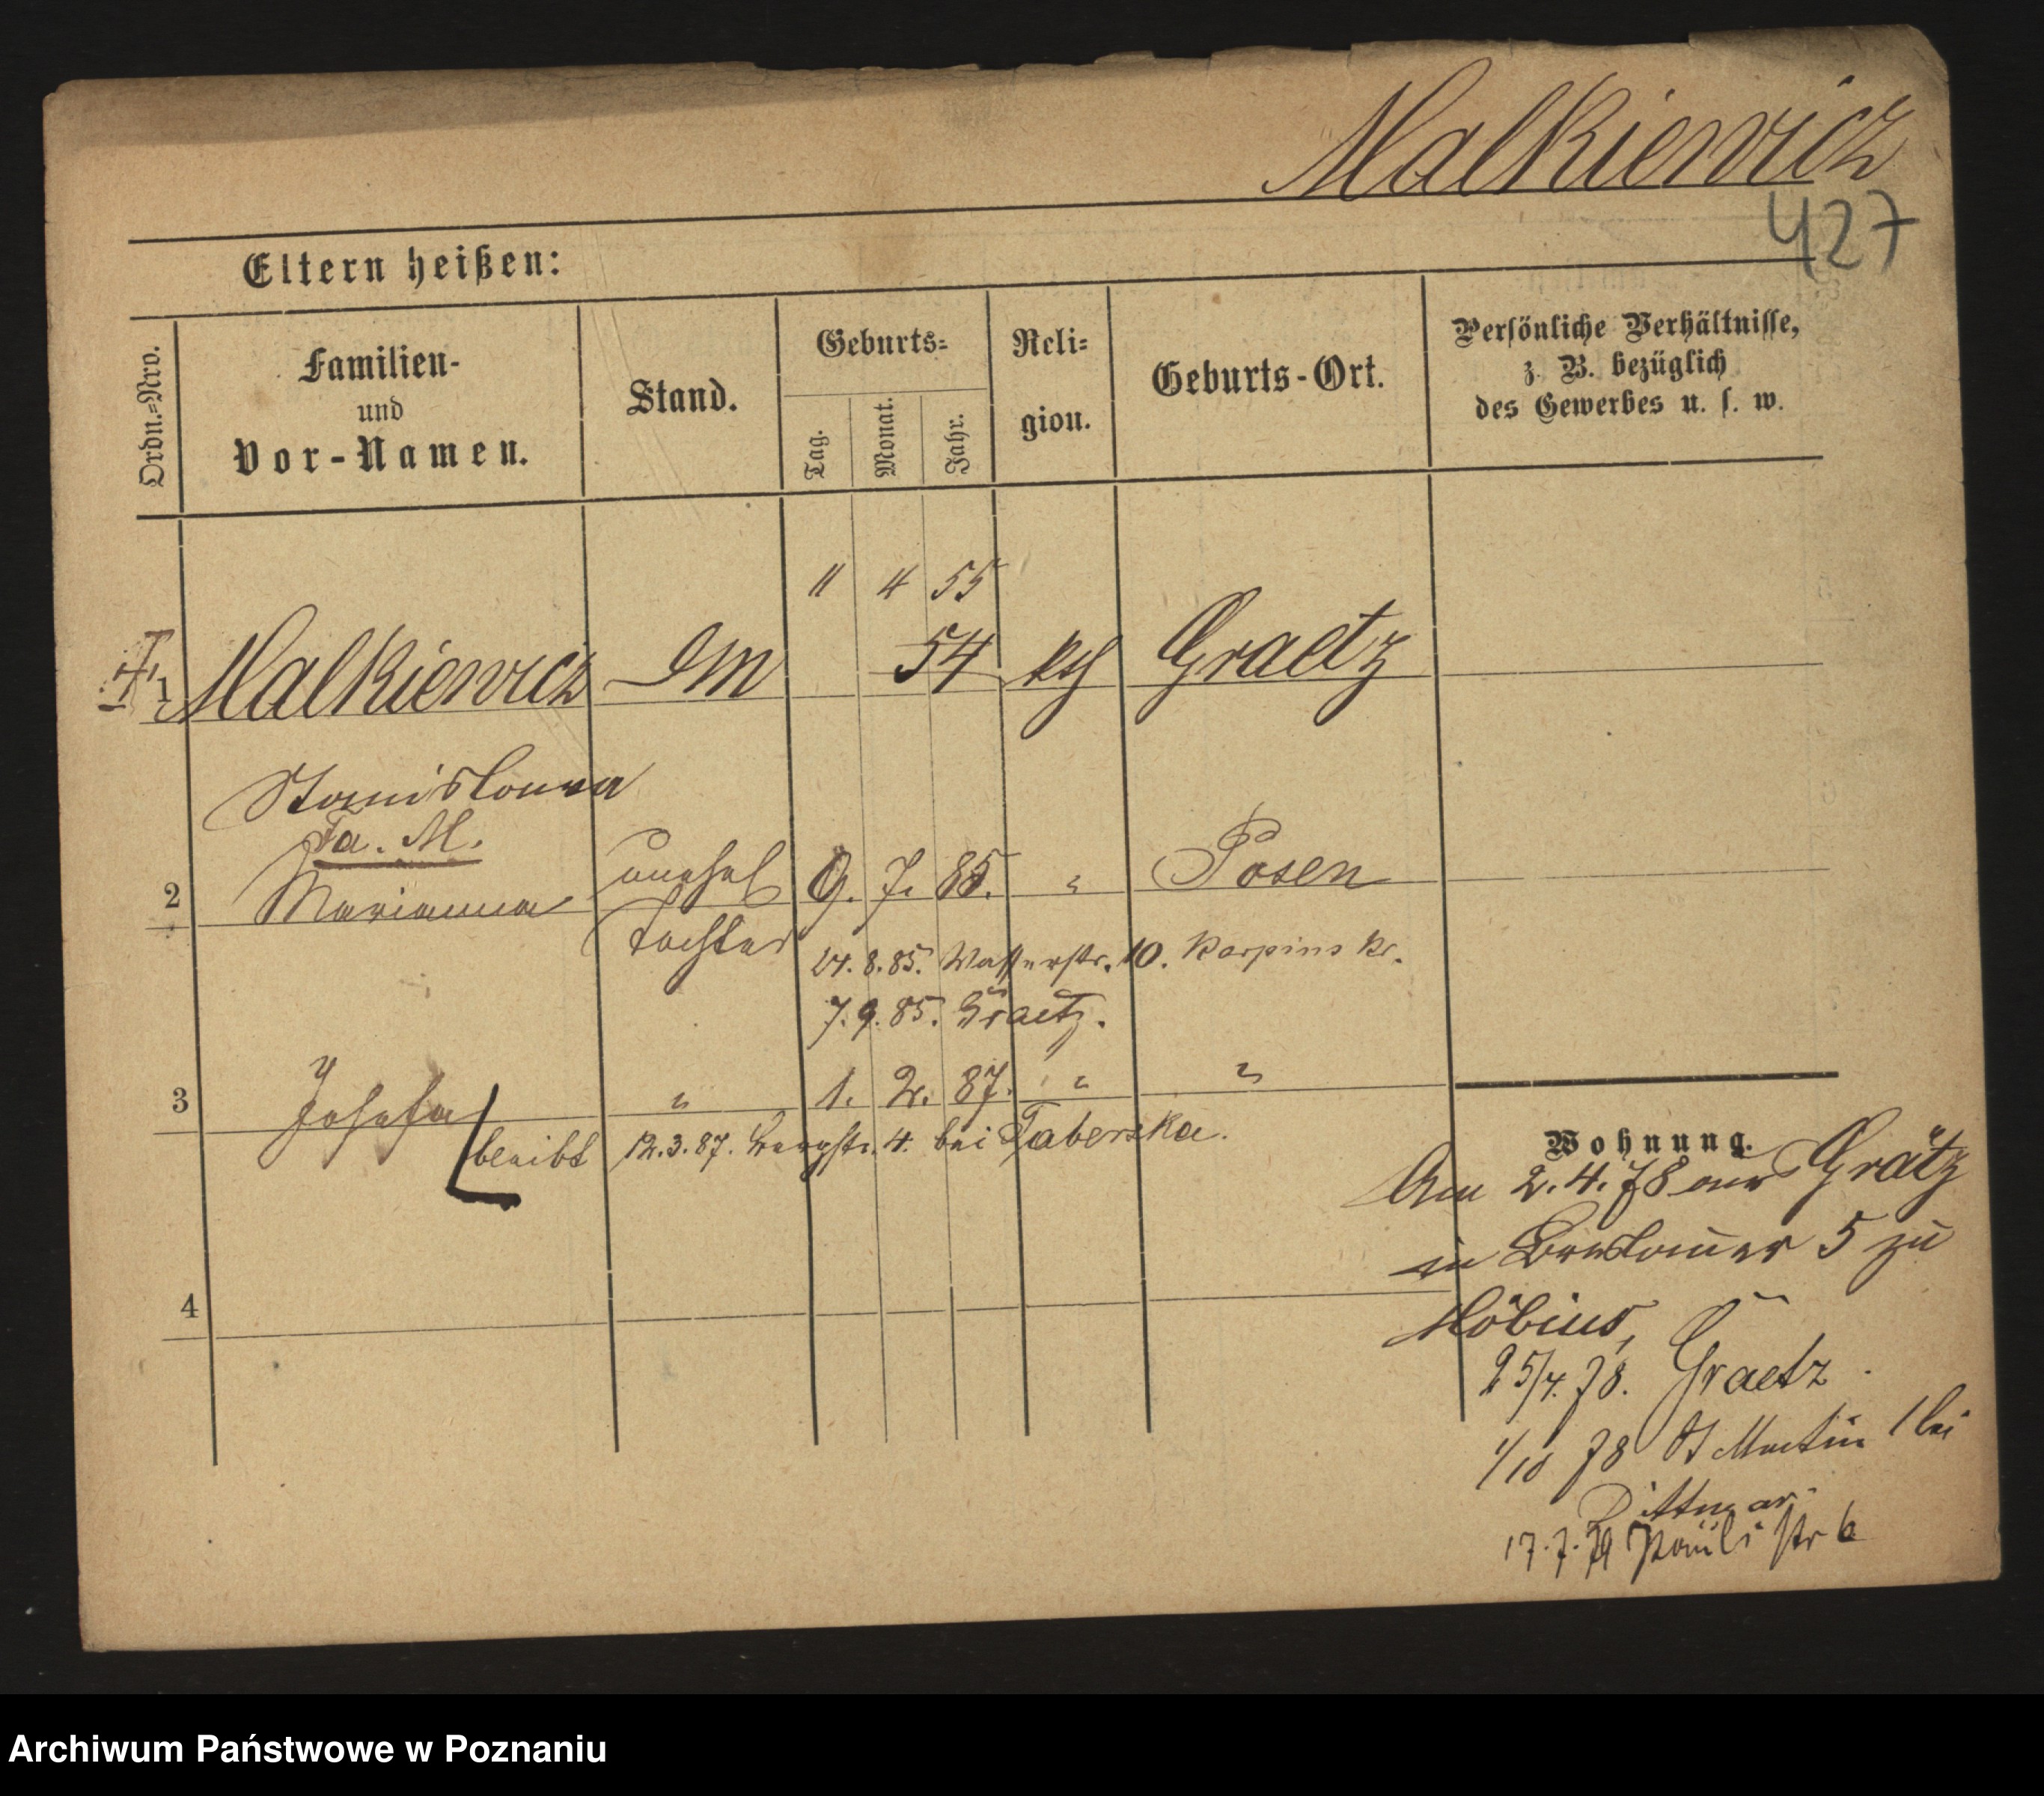 Malkiewicz
427
Eltern heißen:
Ordn.=Nro.
Familien-
und
Vor-Namen.
Stand.
Geburts=
Tag.
Monat.
Jahr.
Reli=
gion.
Geburts-Ort.
Persönliche Verhältnisse,
z. B. bezüglich
des Gewerbes u. s. w.
11 4 55
1 Malkiewicz DM 54 kth Graetz
Stanislawa
Fa. M.
2 Marianna unehel 9. 7. 85. " Posen
Tochter
24. 8. 85. Wasserstr. 10. Karpinski.
7. 9. 85. Graetz.
3 Josefa " 1. 2. 87. " "
bleibt 12. 3. 87. Bergstr. 4. bei Taberska.
4
Wohnung.
Am 2. 4. 78 aus Grätz
in Breslauer 5 zu
Möbius,
25/4. 78. Graetz.
1/10 78 St Martin 1 bei
Dittmar.
17. 7. 79 Pauli str 6
Archiwum Państwowe w Poznaniu